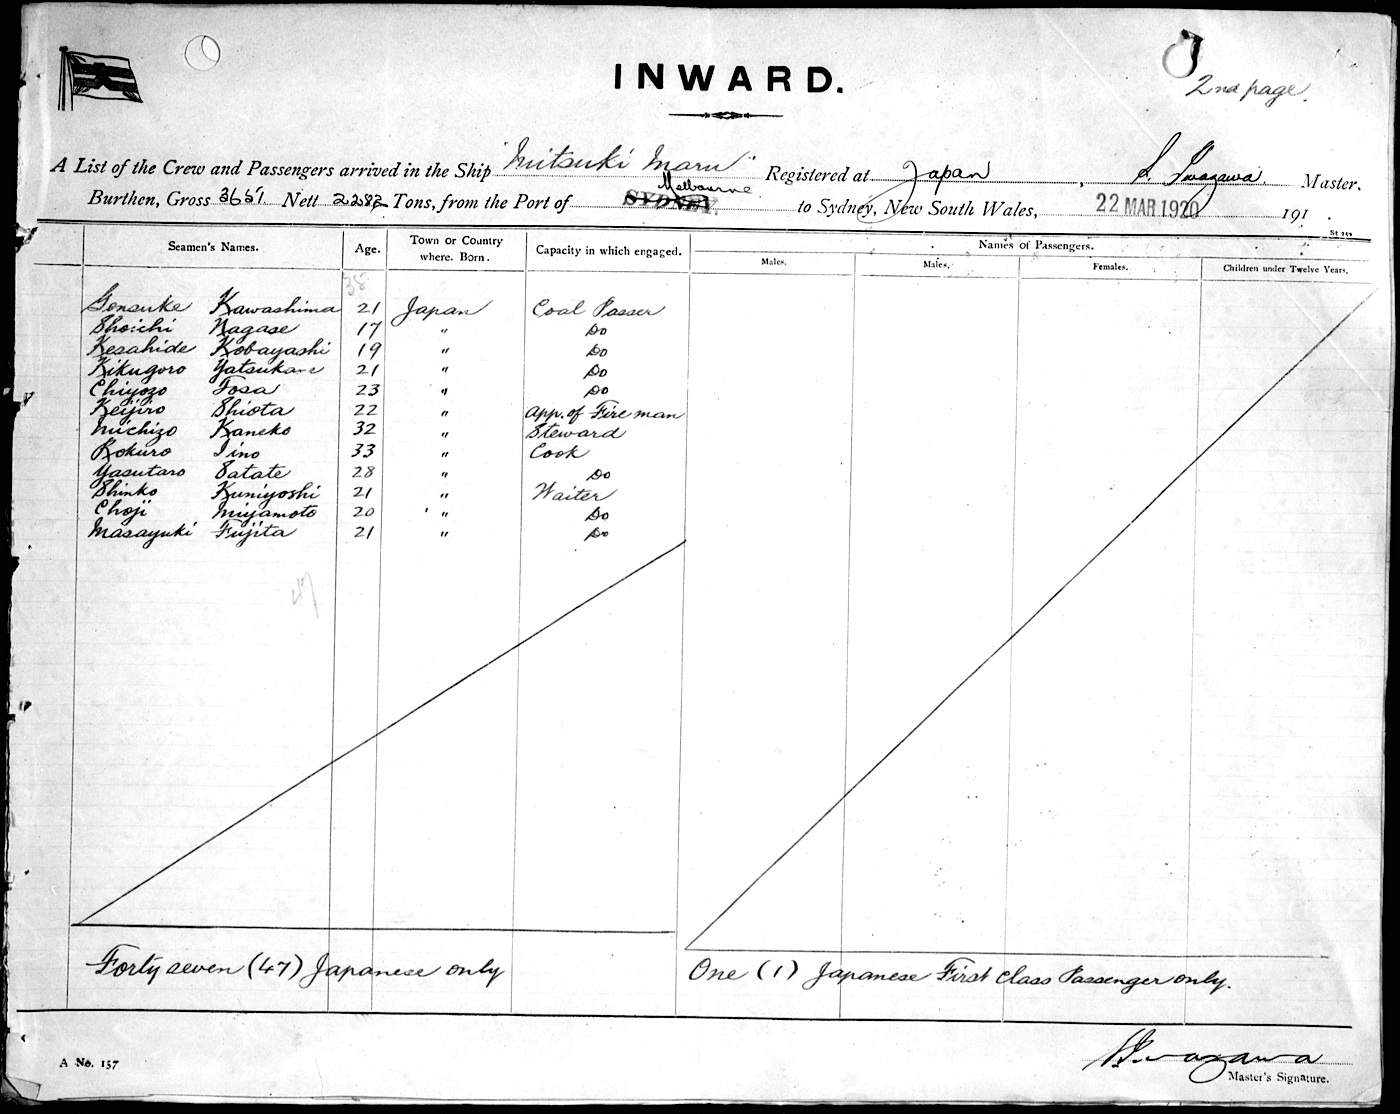 INWARD.
2nd page.
A List of the Crew and Passengers arrived in the Ship "Mitsuki Maru" Registered at Japan, S. Iwagawa. Master.
Burthen, Gross 3651 Nett 2282 Tons, from the Port of SYDNEY. Melbourne to Sydney, New South Wales, 22 MAR 1920 191 .
Seamen's Names. Age. Town or Country where. Born. Capacity in which engaged. Names of Passengers.
Males. Males. Females. Children under Twelve Years.
38
Gensuke Kawashima 21 Japan Coal Passer
Shoichi Nagase 17 " Do
Kesahide Kobayashi 19 " Do
Kikugoro 21 " Do
Chiyozo Tosa 23 " Do
Keijiro Shiota 22 " app. of Fireman
Michizo Kaneko 32 " Steward
Rokuro Iino 33 " Cook
Yasutaro Satate 28 " Do
Shinko Kuniyoshi 21 " Waiter
Choji Miyamoto 20 " Do
Masayuki Fujita 21 " Do
47
Forty seven (47) Japanese only
One (1) Japanese First Class Passenger only.
A No. 157
S. Iwagawa
Master's Signature.